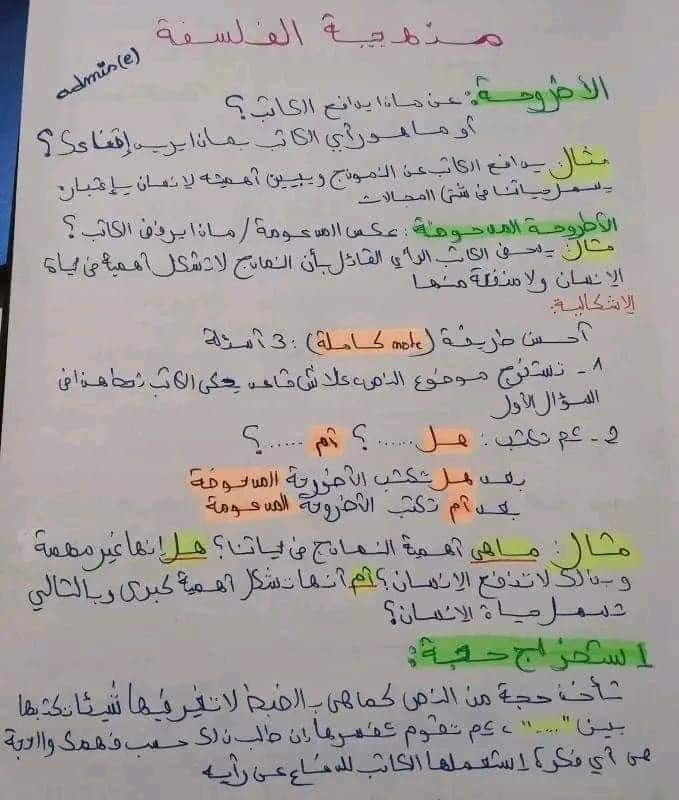 منهجية الفلسفة
admis(e)
الأطروحة: عن ماذا يدافع الكاتب؟
أو ما هو رأي الكاتب بماذا يريد إقناعك؟
مثال: يدافع الكاتب عن النموذج ويبين أهميته لإنسان بإعتباره
يسهل حياتنا في شتى المجالات
الأطروحة المدحوضة: عكس المدعومة / ماذا يرفض الكاتب؟
مثال: يدحض الكاتب الرأي القائل بأن النماذج لا تشكل أهمية في حياة
الإنسان ولا منفعة منها
الإشكالية:
أحسن طريقة (note كاملة): 3 أسئلة
1- تستخرج موضوع النص علاش قاعد يحكي الكاتب تحط هذا في
السؤال الأول
2- ثم تكتب: هل ..... ؟ أم ..... ؟
بعد هل تكتب الأطروحة المدحوضة
بعد أم تكتب الأطروحة المدعومة
مثال: ماهي أهمية النماذج في حياتنا؟ هل إنها غير مهمة
وبذلك لا تنفع الإنسان؟ أم أنها تشكل أهمية كبرى وبالتالي
تسهل حياة الإنسان؟
استخراج حجة:
تأخذ حجة من النص كما هي بالضبط لا تغير فيها شيئا تكتبها
بين "....." ، ثم تقوم بتفسيرها إن طالب ذلك حسب فهمك والحجة
هي أي فكرة إستعملها الكاتب للدفاع عن رأيه